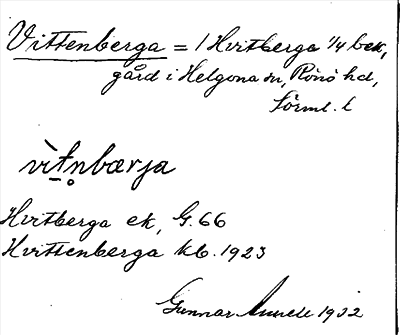 Vittenberga = 1 Hvitberga 1/4 bek,
gård i Helgona sn, Rönö hd,
Sörml. l
vìt̠n̥bærja
Hvitberga ek, G. 66
Hvittenberga kb. 1923
Gunnar 1932